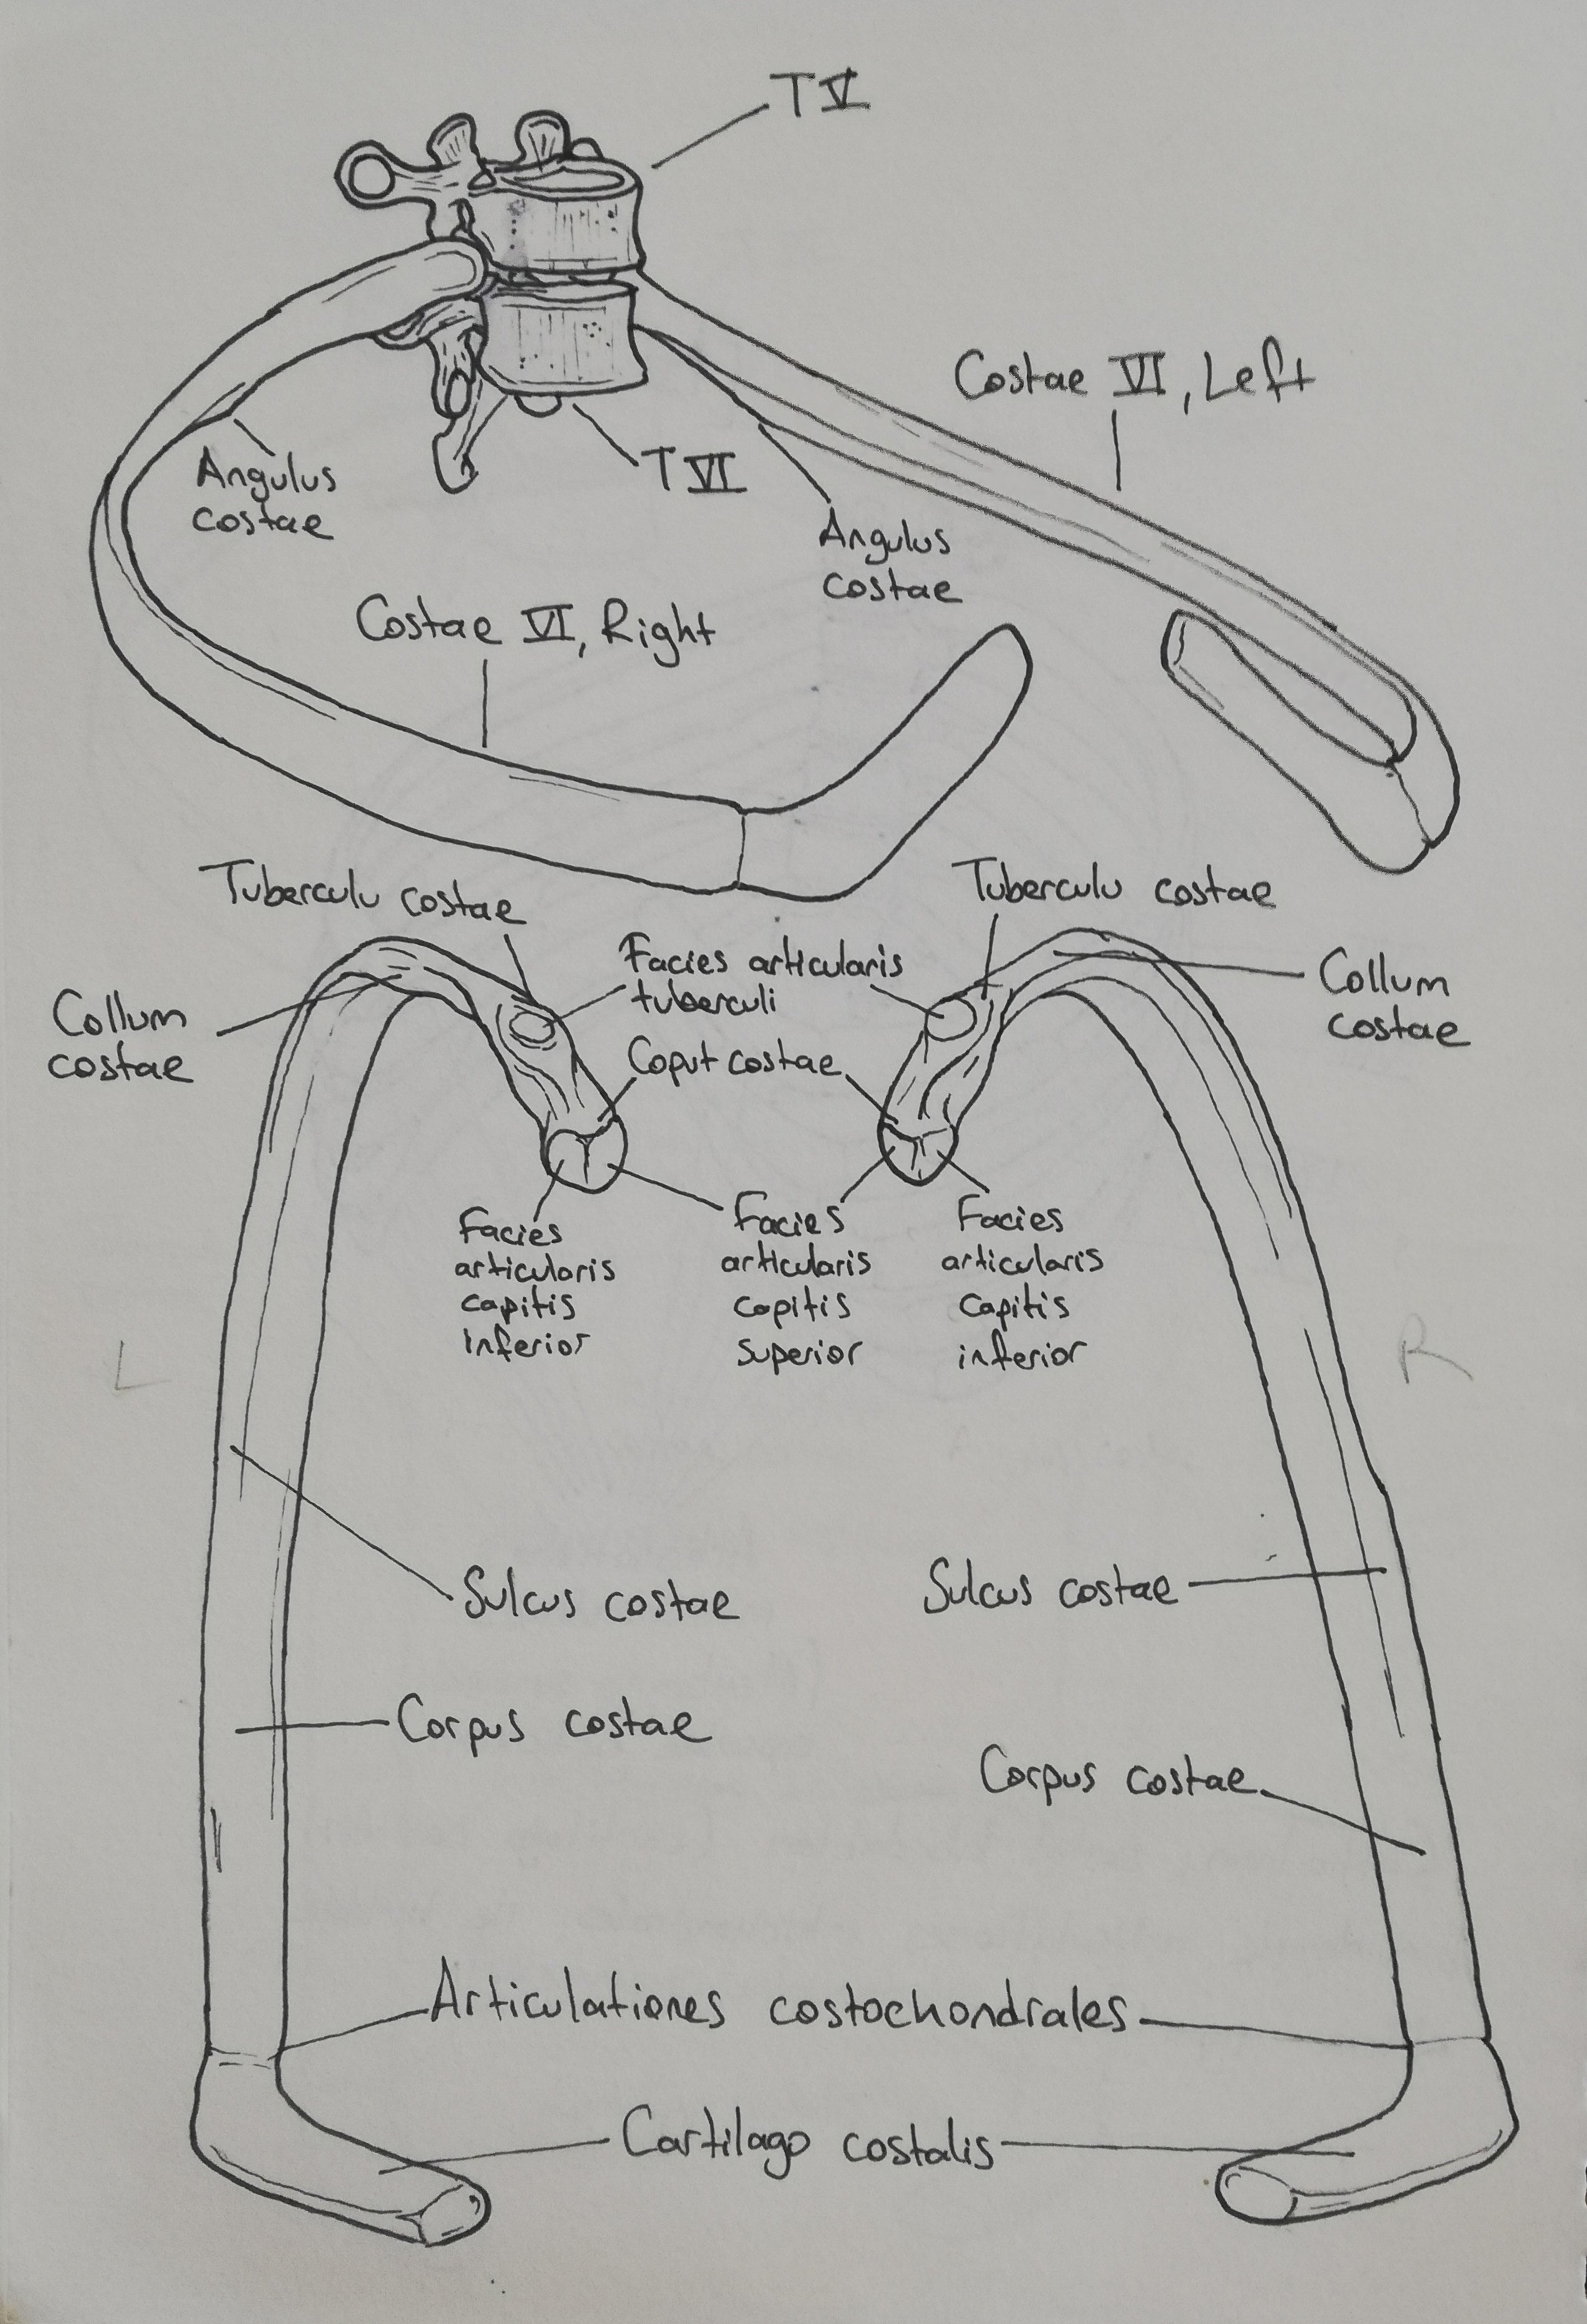 TV
Costae VI, Left
TVI
Angulus
costae
Angulus
costae
Costae VI, Right
Tuberculu costae
Tuberculu costae
Facies articularis
tuberculi
Collum
costae
Collum
costae
Coput costae
Facies
articularis
capitis
Inferior
Facies
articularis
copitis
superior
Facies
articularis
Capitis
inferior
L
R
Sulcus costae
Sulcus costae
Corpus costae
Corpus costae
Articulationes costochondrales
Cartilago costalis